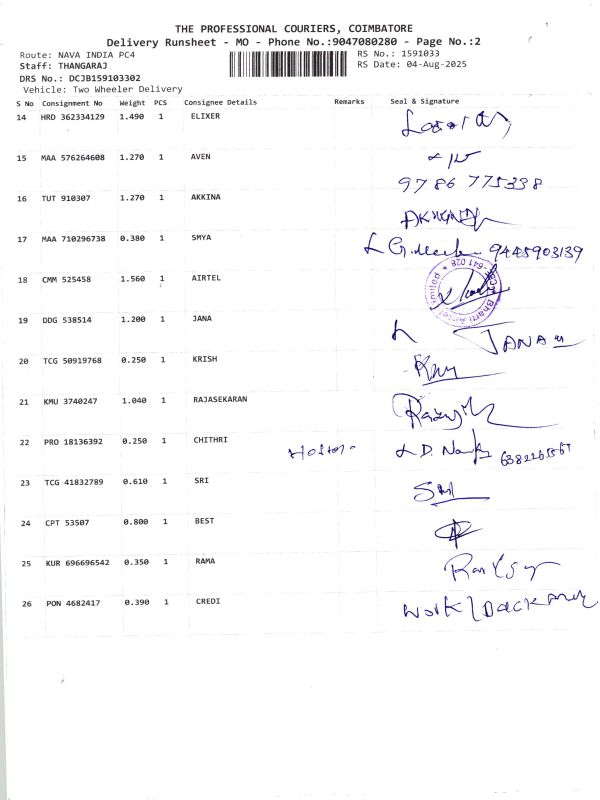 THE PROFESSIONAL COURIERS, COIMBATORE
Delivery Runsheet - MO - Phone No.:9047080280 - Page No.:2
Route: NAVA INDIA PC4 RS No.: 1591033
Staff: THANGARAJ RS Date: 04-Aug-2025
DRS No.: DCJB159103302
Vehicle: Two Wheeler Delivery
S No Consignment No Weight PCS Consignee Details Remarks Seal & Signature
14 HRD 362334129 1.490 1 ELIXER
15 MAA 576264608 1.270 1 AVEN
9786 775338
16 TUT 910307 1.270 1 AKKINA
17 MAA 710296738 0.380 1 SMYA 9445903139
18 CMM 525458 1.560 1 AIRTEL
19 DDG 538514 1.200 1 JANA JANA
20 TCG 50919768 0.250 1 KRISH
21 KMU 3740247 1.040 1 RAJASEKARAN
22 PRO 18136392 0.250 1 CHITHRI
23 TCG 41832789 0.610 1 SRI
24 CPT 53507 0.800 1 BEST
25 KUR 696696542 0.350 1 RAMA
26 PON 4682417 0.390 1 CREDI